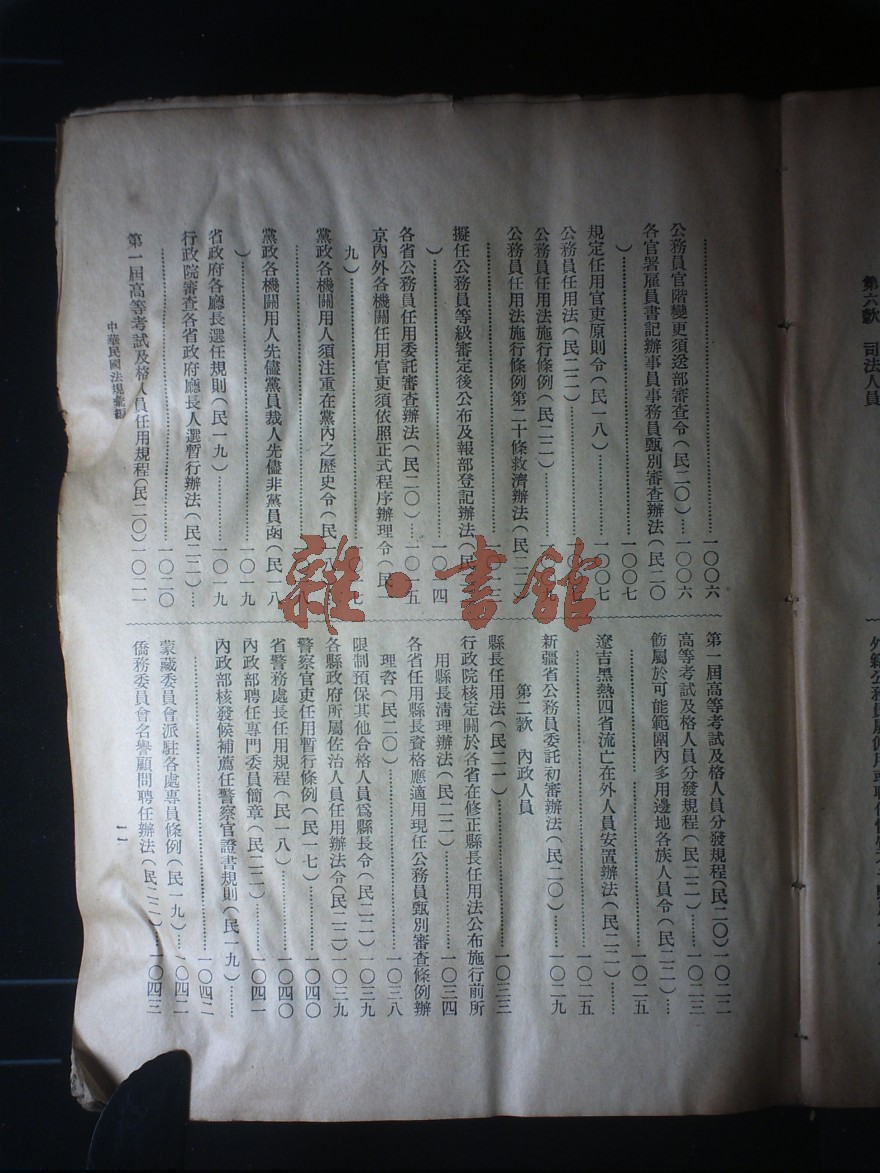 第六款　司法人員
…………一〇〇六
公務員官階變更須送部審查令(民二〇)…一〇〇六
各官署雇員書記辦事員事務員甄別審查辦法(民二〇
)…………一〇〇七
規定任用官吏原則令(民一八)…………一〇〇七
公務員任用法(民二二)…………
公務員任用法施行條例(民二二)…………
公務員任用法施行條例第二十條救濟辦法(民二二
…………
擬任公務員等級審定後公布及報部登記辦法(民
)…………一〇一四
各省公務員任用委託審查辦法(民二〇)…一〇一五
京內外各機關任用官吏須依照正式程序辦理令(民一
九)…………
黨政各機關用人須注重在黨內之歷史令(民一八
…………
黨政各機關用人先儘黨員裁人先儘非黨員函(民一八
)…………一〇一九
省政府各廳長選任規則(民一九)…………一〇一九
行政院審查各省政府廳長人選暫行辦法(民二二)…
…………一〇二〇
第一屆高等考試及格人員任用規程(民二〇)一〇二一
第一屆高等考試及格人員分發規程(民二〇)一〇二二
高等考試及格人員分發規程(民二二)…一〇二三
飭屬於可能範圍內多用邊地各族人員令(民二二)…
…………一〇二五
遼吉黑熱四省流亡在外人員安置辦法(民二二)…
…………一〇二五
新疆省公務員委託初審辦法(民二〇)…一〇二九
第二款　內政人員
縣長任用法(民二一)…………一〇三三
行政院核定關於各省在修正縣長任用法公布施行前所
用縣長清理辦法(民二二)…………一〇三四
各省任用縣長資格應適用現任公務員甄別審查條例辦
理咨(民二〇)…………一〇三八
限制預保其他合格人員爲縣長令(民二二)一〇三九
各縣政府所屬佐治人員任用辦法令(民二二)一〇三九
警察官吏任用暫行條例(民一七)…………一〇四〇
省警務處長任用規程(民一八)…………一〇四〇
內政部聘任專門委員簡章(民二二)…………一〇四一
內政部核發候補薦任警察官證書規則(民一九)……
…………一〇四二
蒙藏委員會派駐各處專員條例(民一九)…一〇四二
僑務委員會名譽顧問聘任辦法(民二二)…一〇四三
中華民國法規彙編
一一
雜·書館